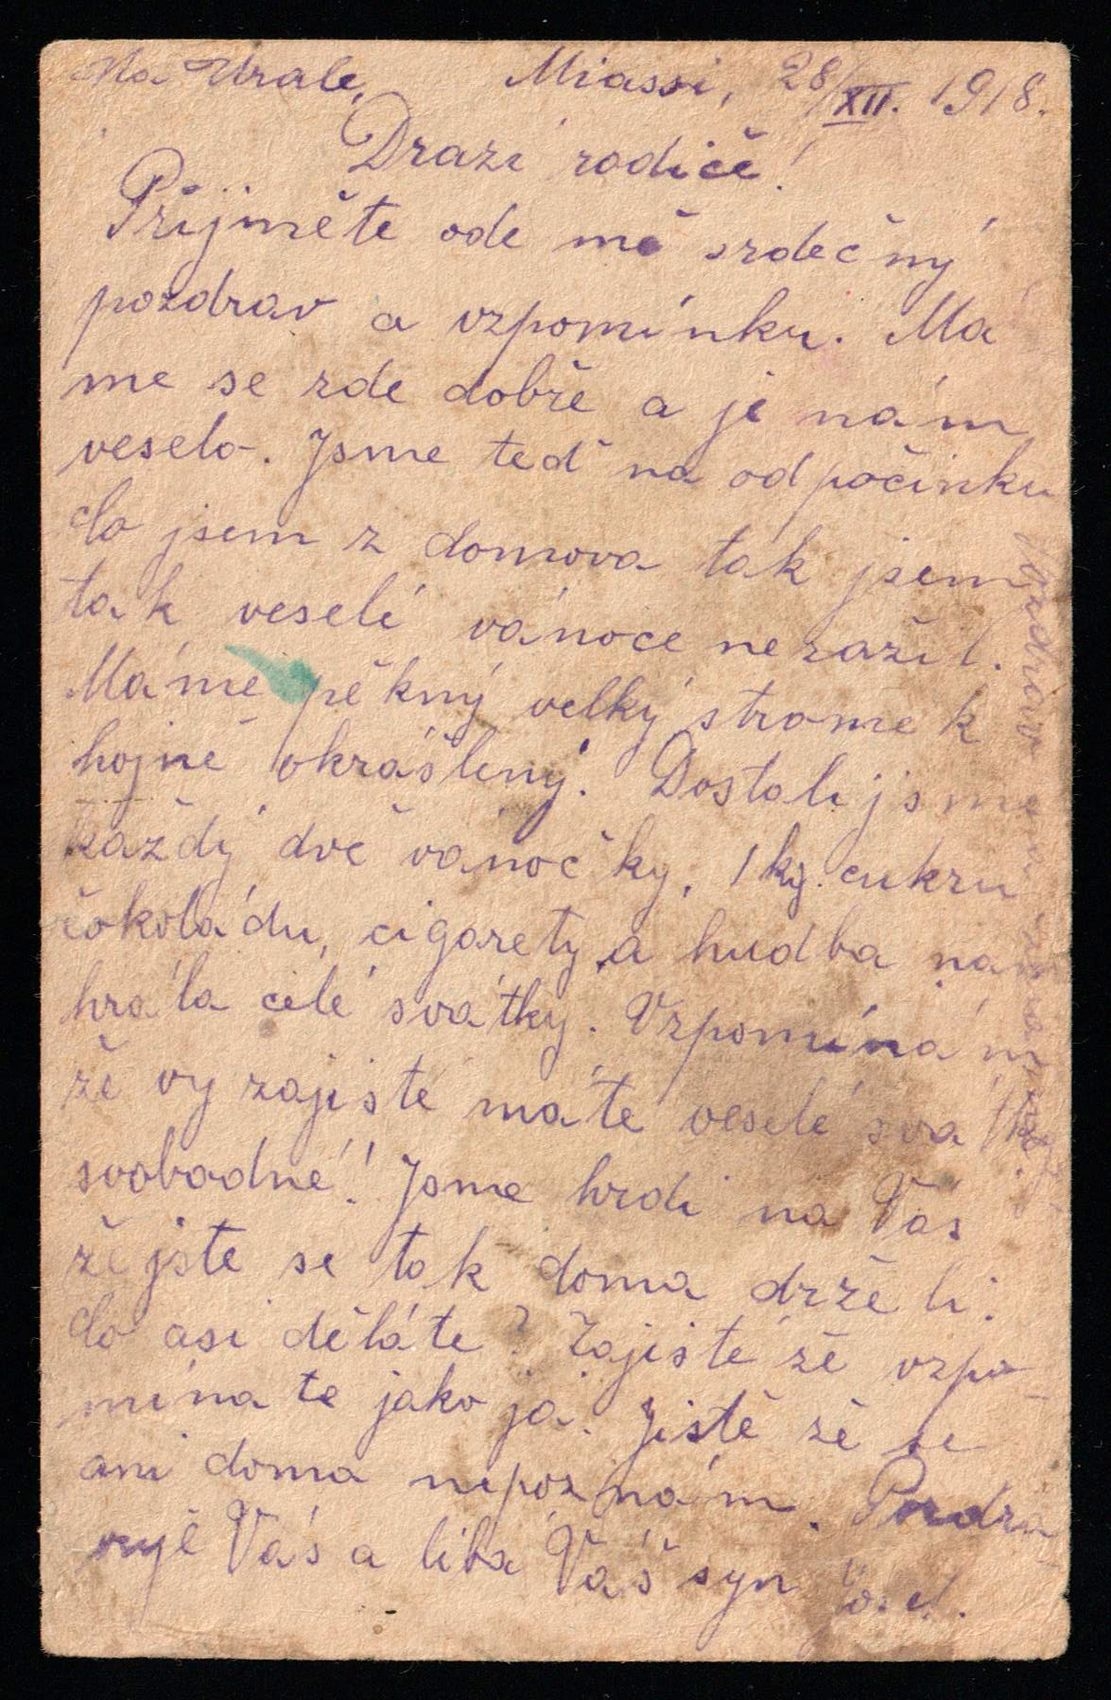 Na Urale, Miassi, 28/XII. 1918.
Drazí rodiče!
Přijměte ode mě srdečný
pozdrav a vzpomínku. Má
me se zde dobře a je nám
veselo. Jsme teď na odpočinku
Co jsem z domova tak jsem
tak veselé vánoce nezažil.
Máme pěkný velký stromek
hojně okrášlený. Dostali jsme
každý dvě vánočky, 1 kg. cukru
čokoládu, cigarety a hudba nám
hrála celé svátky. Vzpomínám
že vy zajisté máte veselé svátky
svobodné! Jsme hrdi na Vás
že jste se tak doma drželi.
Co asi děláte? Zajisté že vzpo-
mínate jako já. Jistě že se
ani doma nepoznám. Pozdra
vuje Vás a líbá Váš syn Jos.
Pozdrav